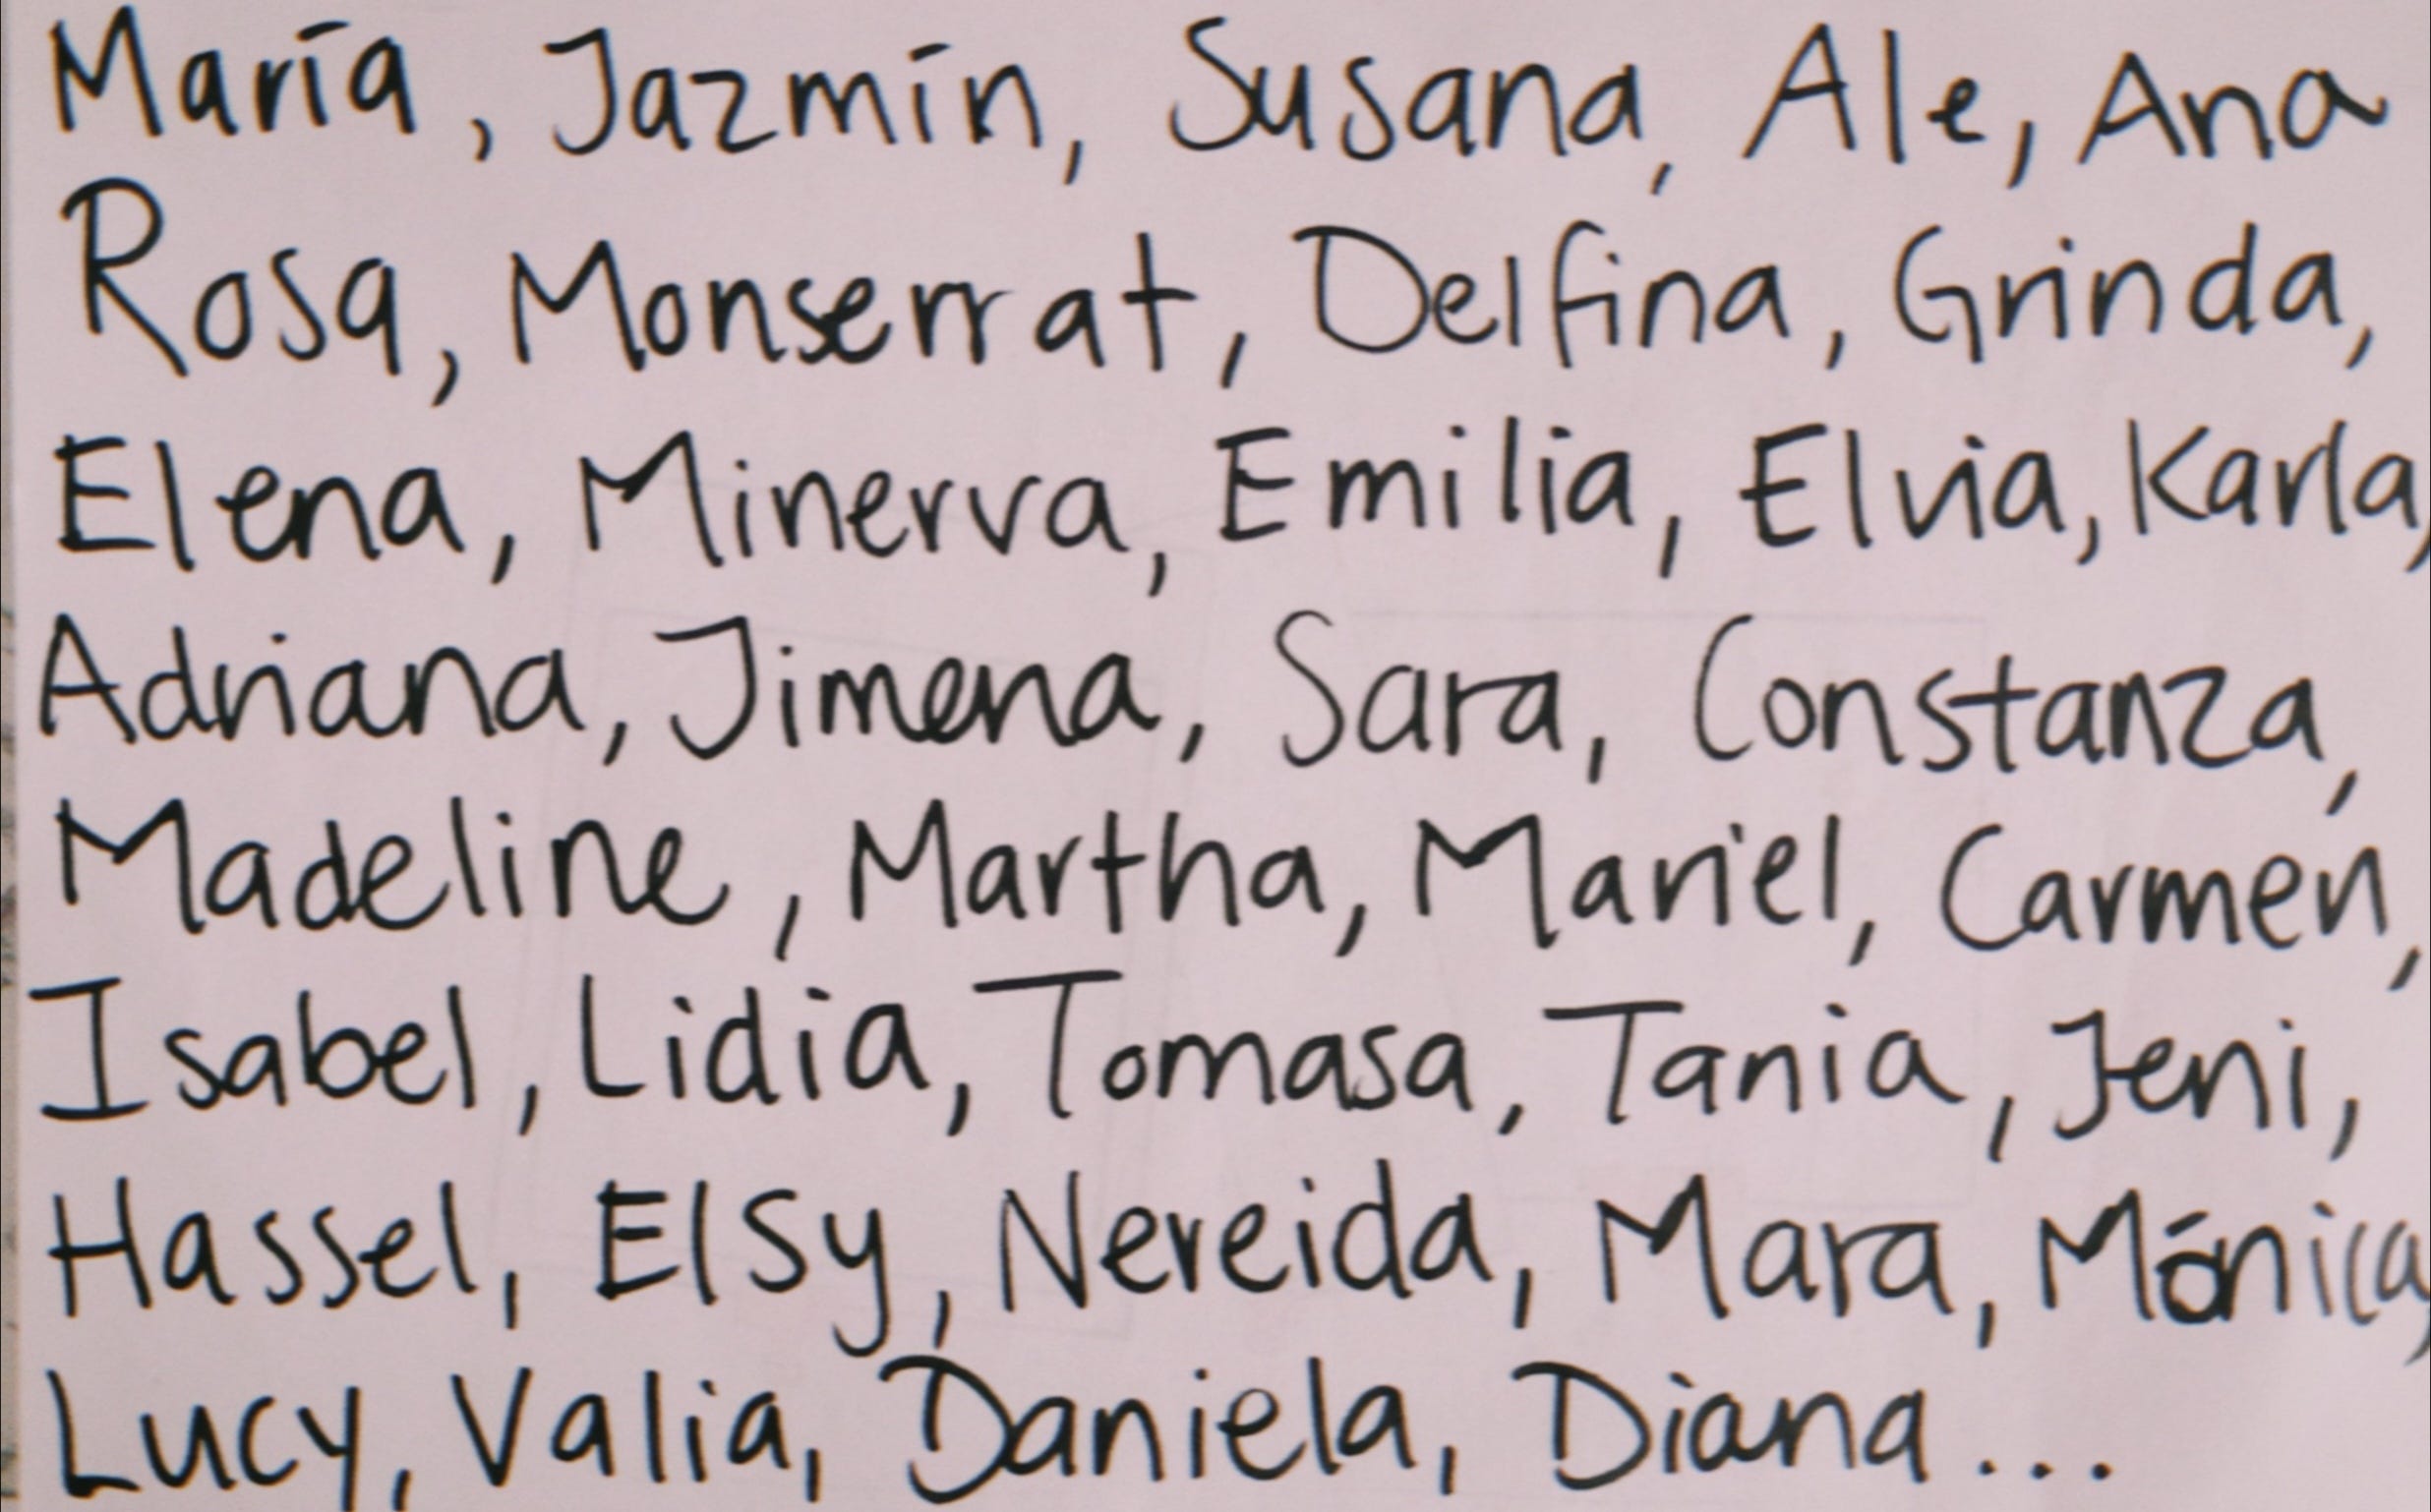 María, Jazmín, Susana, Ale, Ana
Rosa, Monserrat, Delfina, Grinda,
Elena, Minerva, Emilia, Elvia, Karla,
Adriana, Jimena, Sara, Constanza,
Madeline, Martha, Mariel, Carmen,
Isabel, Lidia, Tomasa, Tania, Jeni,
Hassel, Elsy, Nereida, Mara, Mónica,
Lucy, Valia, Daniela, Diana...